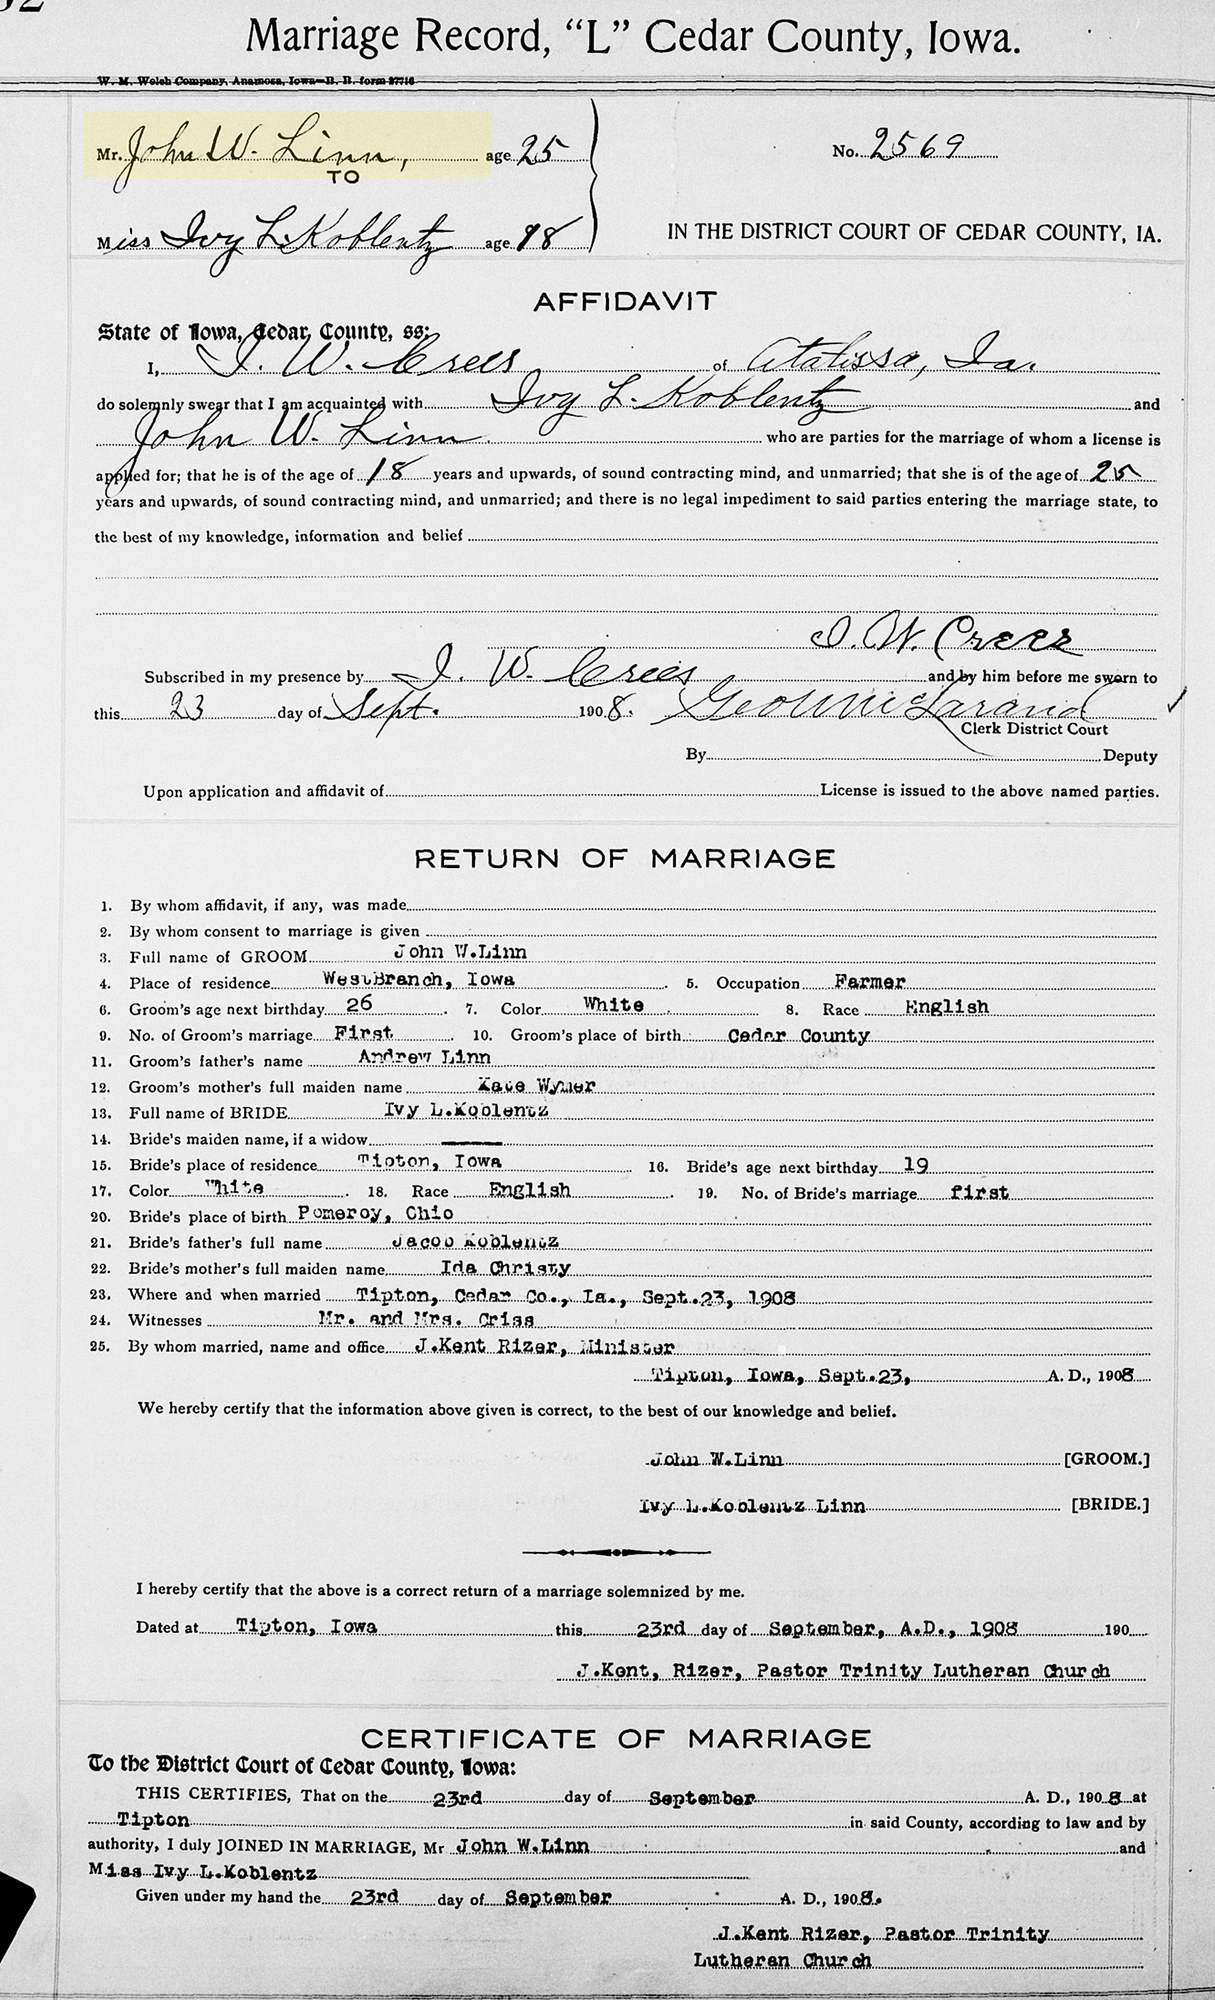 Marriage Record, “L” Cedar County, Iowa.
W. M. Welch Company, Anamosa, Iowa—B. B. form 27716
Mr. John W. Linn, age 25
No. 2569
TO
Miss Ivy L. Koblentz age 18
IN THE DISTRICT COURT OF CEDAR COUNTY, IA.
AFFIDAVIT
State of Iowa, Cedar, County, ss:
I, I. W. Crees of Atalissa, Ia.
do solemnly swear that I am acquainted with Ivy L. Koblentz and
John W. Linn who are parties for the marriage of whom a license is
applied for; that he is of the age of 18 years and upwards, of sound contracting mind, and unmarried; that she is of the age of 25
years and upwards, of sound contracting mind, and unmarried; and there is no legal impediment to said parties entering the marriage state, to
the best of my knowledge, information and belief
I. W. Crees
Subscribed in my presence by I. W. Crees and by him before me sworn to
this 23 day of Sept. 1908. Geo
Clerk District Court
By Deputy
Upon application and affidavit of License is issued to the above named parties.
RETURN OF MARRIAGE
1. By whom affidavit, if any, was made
2. By whom consent to marriage is given
3. Full name of GROOM John W.Linn
4. Place of residence WestBranch, Iowa. 5. Occupation Farmer
6. Groom's age next birthday 26. 7. Color White. 8. Race English
9. No. of Groom's marriage First. 10. Groom's place of birth Cedar County
11. Groom's father's name Andrew Linn
12. Groom's mother's full maiden name Kate Wymer
13. Full name of BRIDE Ivy L.Koblentz
14. Bride's maiden name, if a widow
15. Bride's place of residence Tipton, Iowa 16. Bride's age next birthday 19
17. Color White. 18. Race English. 19. No. of Bride's marriage first
20. Bride's place of birth Pomeroy, Ohio
21. Bride's father's full name Jacob Koblentz
22. Bride's mother's full maiden name Ida Christy
23. Where and when married Tipton, Cedar Co., Ia., Sept.23, 1908
24. Witnesses Mr. and Mrs. Criss
25. By whom married, name and office J.Kent Rizer, Minister
Tipton, Iowa, Sept.23, A. D., 1908
We hereby certify that the information above given is correct, to the best of our knowledge and belief.
John W.Linn [GROOM.]
Ivy L.Koblentz Linn [BRIDE.]
I hereby certify that the above is a correct return of a marriage solemnized by me.
Dated at Tipton, Iowa this 23rd day of September, A.D., 1908 190
J.Kent, Rizer, Pastor Trinity Lutheran Church
CERTIFICATE OF MARRIAGE
To the District Court of Cedar County, Iowa:
THIS CERTIFIES, That on the 23rd day of September A. D., 1908 at
Tipton in said County, according to law and by
authority, I duly JOINED IN MARRIAGE, Mr John W.Linn and
Miss Ivy L.Koblentz
Given under my hand the 23rd day of September A. D., 1908.
J.Kent Rizer, Pastor Trinity
Lutheran Church